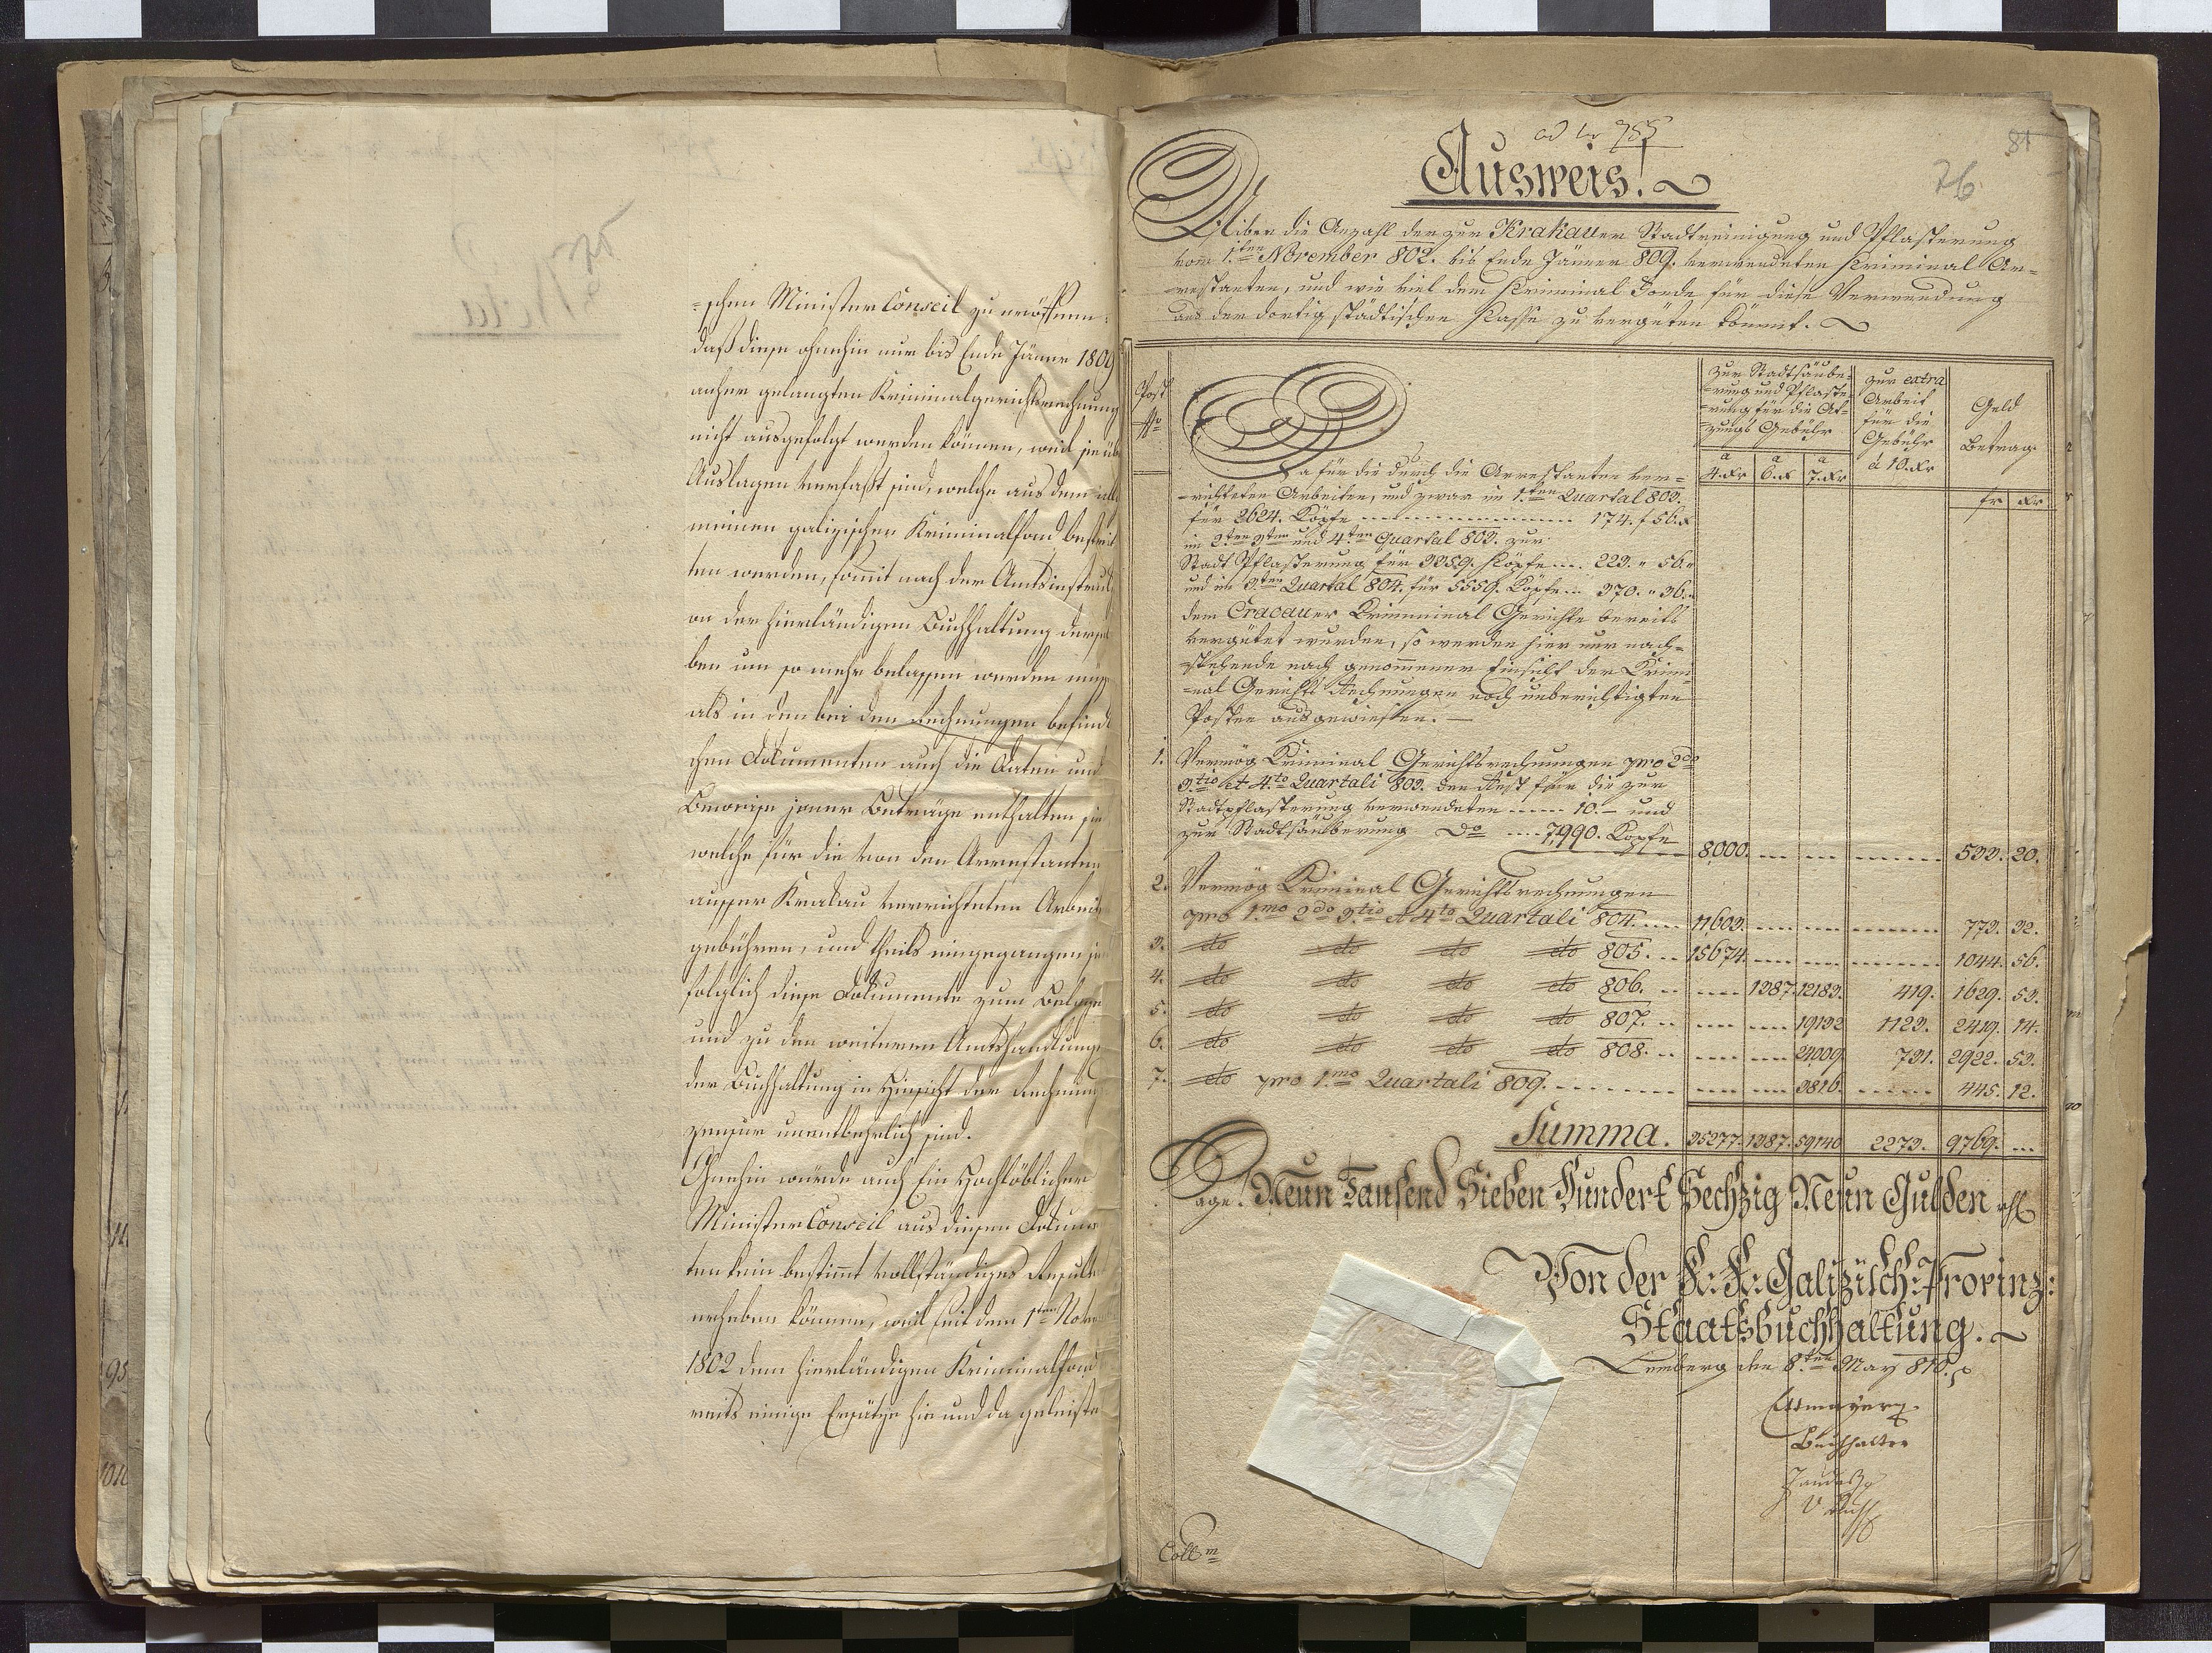 =schen Minister Conseil zu eröffnen:
daß diese ohnehin nur bis Ende Jäner 1809
anher gelangten Kriminalgerichtsrechnung
nicht ausgefolgt werden können, weil sie üb
Auslagen verfaßt sind, welche aus dem all
meinen galizischen Kriminalfond bestrit
ten werden, somit nach der Amtsinstruk
on der hierländigen Buchhaltung dersel
ben um so mehr belassen werden müs
als in den bei den Rechnungen befindl
chen Dokumenten auch die Daten und
Beweise jener Beträge enthalten sin
welche für die von den Arrestanten
ausser Krakau verrichteten Arbeit
gebühren, und theils eingegangen si
folglich diese Dokumente zum Belege
und zu den weiteren Amtshandlunge
der Buchhaltung in Hinsicht der Rechnung
zensur unentbehrlich sind.
Ohnehin würde auch Ein Hochlöblicher
Minister Conseil aus diesen Dokume
ten kein bestimmt vollständiges Resulta
erheben können, weil seit dem 1ten Nove
1802 dem hierländigen Kriminalfond
reits einige Ersätze hie und da geleiste
ad Nr 755
81
Ausweis!
76
Uiber die Anzahl der zur Krakauer Stadtreinigung und Pflasterung
vom 1.ten November 802. bis Ende Jänner 809. verwendeten Kriminal Ar=
=restanten, und wie viel dem Kriminal Fonde für diese Verwendung
aus der dortig städtischen Kasse zu vergüten kömmt.
Post
Nro
Zur Stadtsäube=
=rung und Pflaste=
=rung für die At=
=zungs Gebühr
a 4. Kr a 6. K a 7. Kr
zur extra
Arbeit
für die
Gebühr
à 10. Kr
Geld
Betrag
fr Kr
Da für die durch die Arrestanten ver=
=richteten Arbeiten, und zwar im 1.ten Quartal 803.
für 2624. Köpfe ........ 174. f 56. K
im 2.ten 3ten und 4.ten Quartal 803. zur
Stadt Pflasterung für 3359. Köpfe .... 223. " 56. "
und im 3.ten Quartal 804. für 5559. Köpfe ... 370. " 36. "
dem Cracauer Kriminal Gerichte bereits
vergütet wurden, so werden hier nur nach=
=stehende nach genommener Einsicht der Krimi=
=nal Gerichts Rechnungen noch unberichtigten
Posten ausgewiesen. —
1. Vermög Kriminal Gerichtsrechnungen pro 2do
3.tio et 4.to Quartali 803. den Rest für die zur
Stadtpflasterung verwendeten ..... 10. — und
zur Stadtsäuberung Do .... 7,990. Köpfe
8,000. .... .... ........ 533. 20.
2. Vermög Kriminal Gerichtsrechnungen
pro 1.mo 2do 3.tio et 4to Quartali 804. .... 11,603. .... .... ........ 773. 32.
3. dto dto dto dto 805. ... 15674. .... .... ........ 1044. 56.
4. dto dto dto dto 806. .. ..... 1387. 12183. 419. 1629. 53.
5. dto dto dto dto 807. .. ..... .... 19132 1123. 2419. 14.
6. dto dto dto dto 808. .. ..... .... 24009. 731. 2922. 53.
7. dto pro 1.mo Quartali 809. ........ ..... .... 3816. ...... 445. 12.
Summa. 35277. 1387. 59140 2273. 9769. ...
Sage. Neun Tausend Sieben Hundert Sechzig Neun Gulden
Von der K: K: Galizisch: Provinz:
Staatsbuchhaltung.
Lemberg den 8.ten May 810.
Buchhalter
Coll m